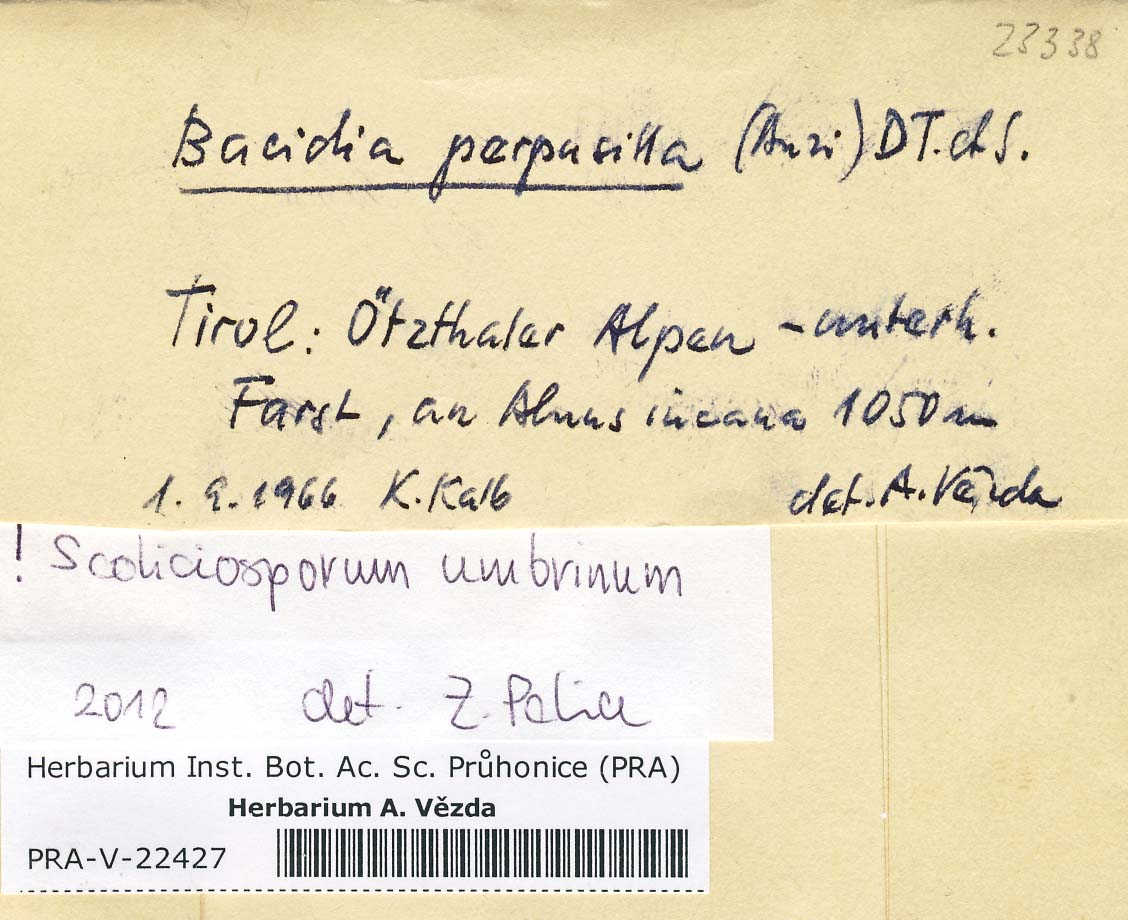 23338
Bacidia perpusilla (Anzi) DT. et S.
Tirol: Ötzthaler Alpen - unterh.
Farst, an Alnus incana 1050 m
1. 9. 1966 K. Kalb det. A. Vězda
! Scoliciosporum umbrinum
2012 det. Z. Palice
Herbarium Inst. Bot. Ac. Sc. Průhonice (PRA)
Herbarium A. Vězda
PRA-V-22427